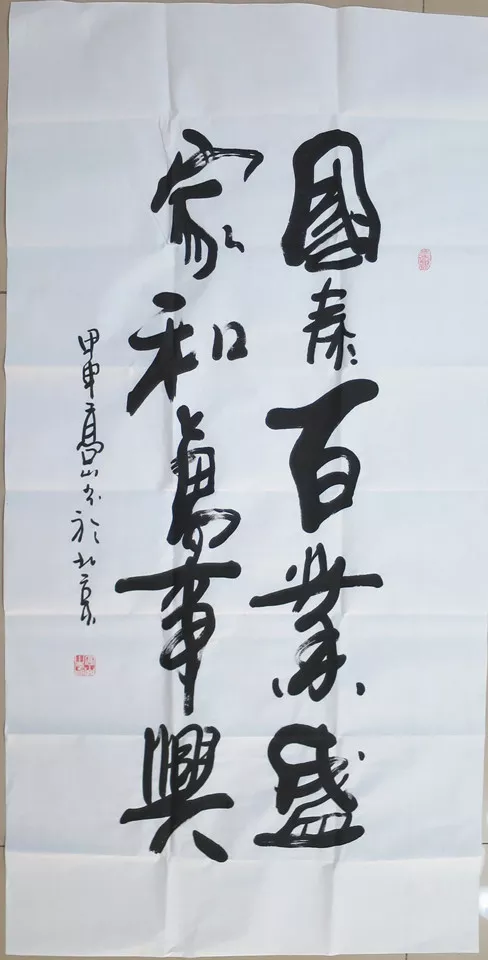 國泰百業盛
家和萬事興
甲申高山书於北京